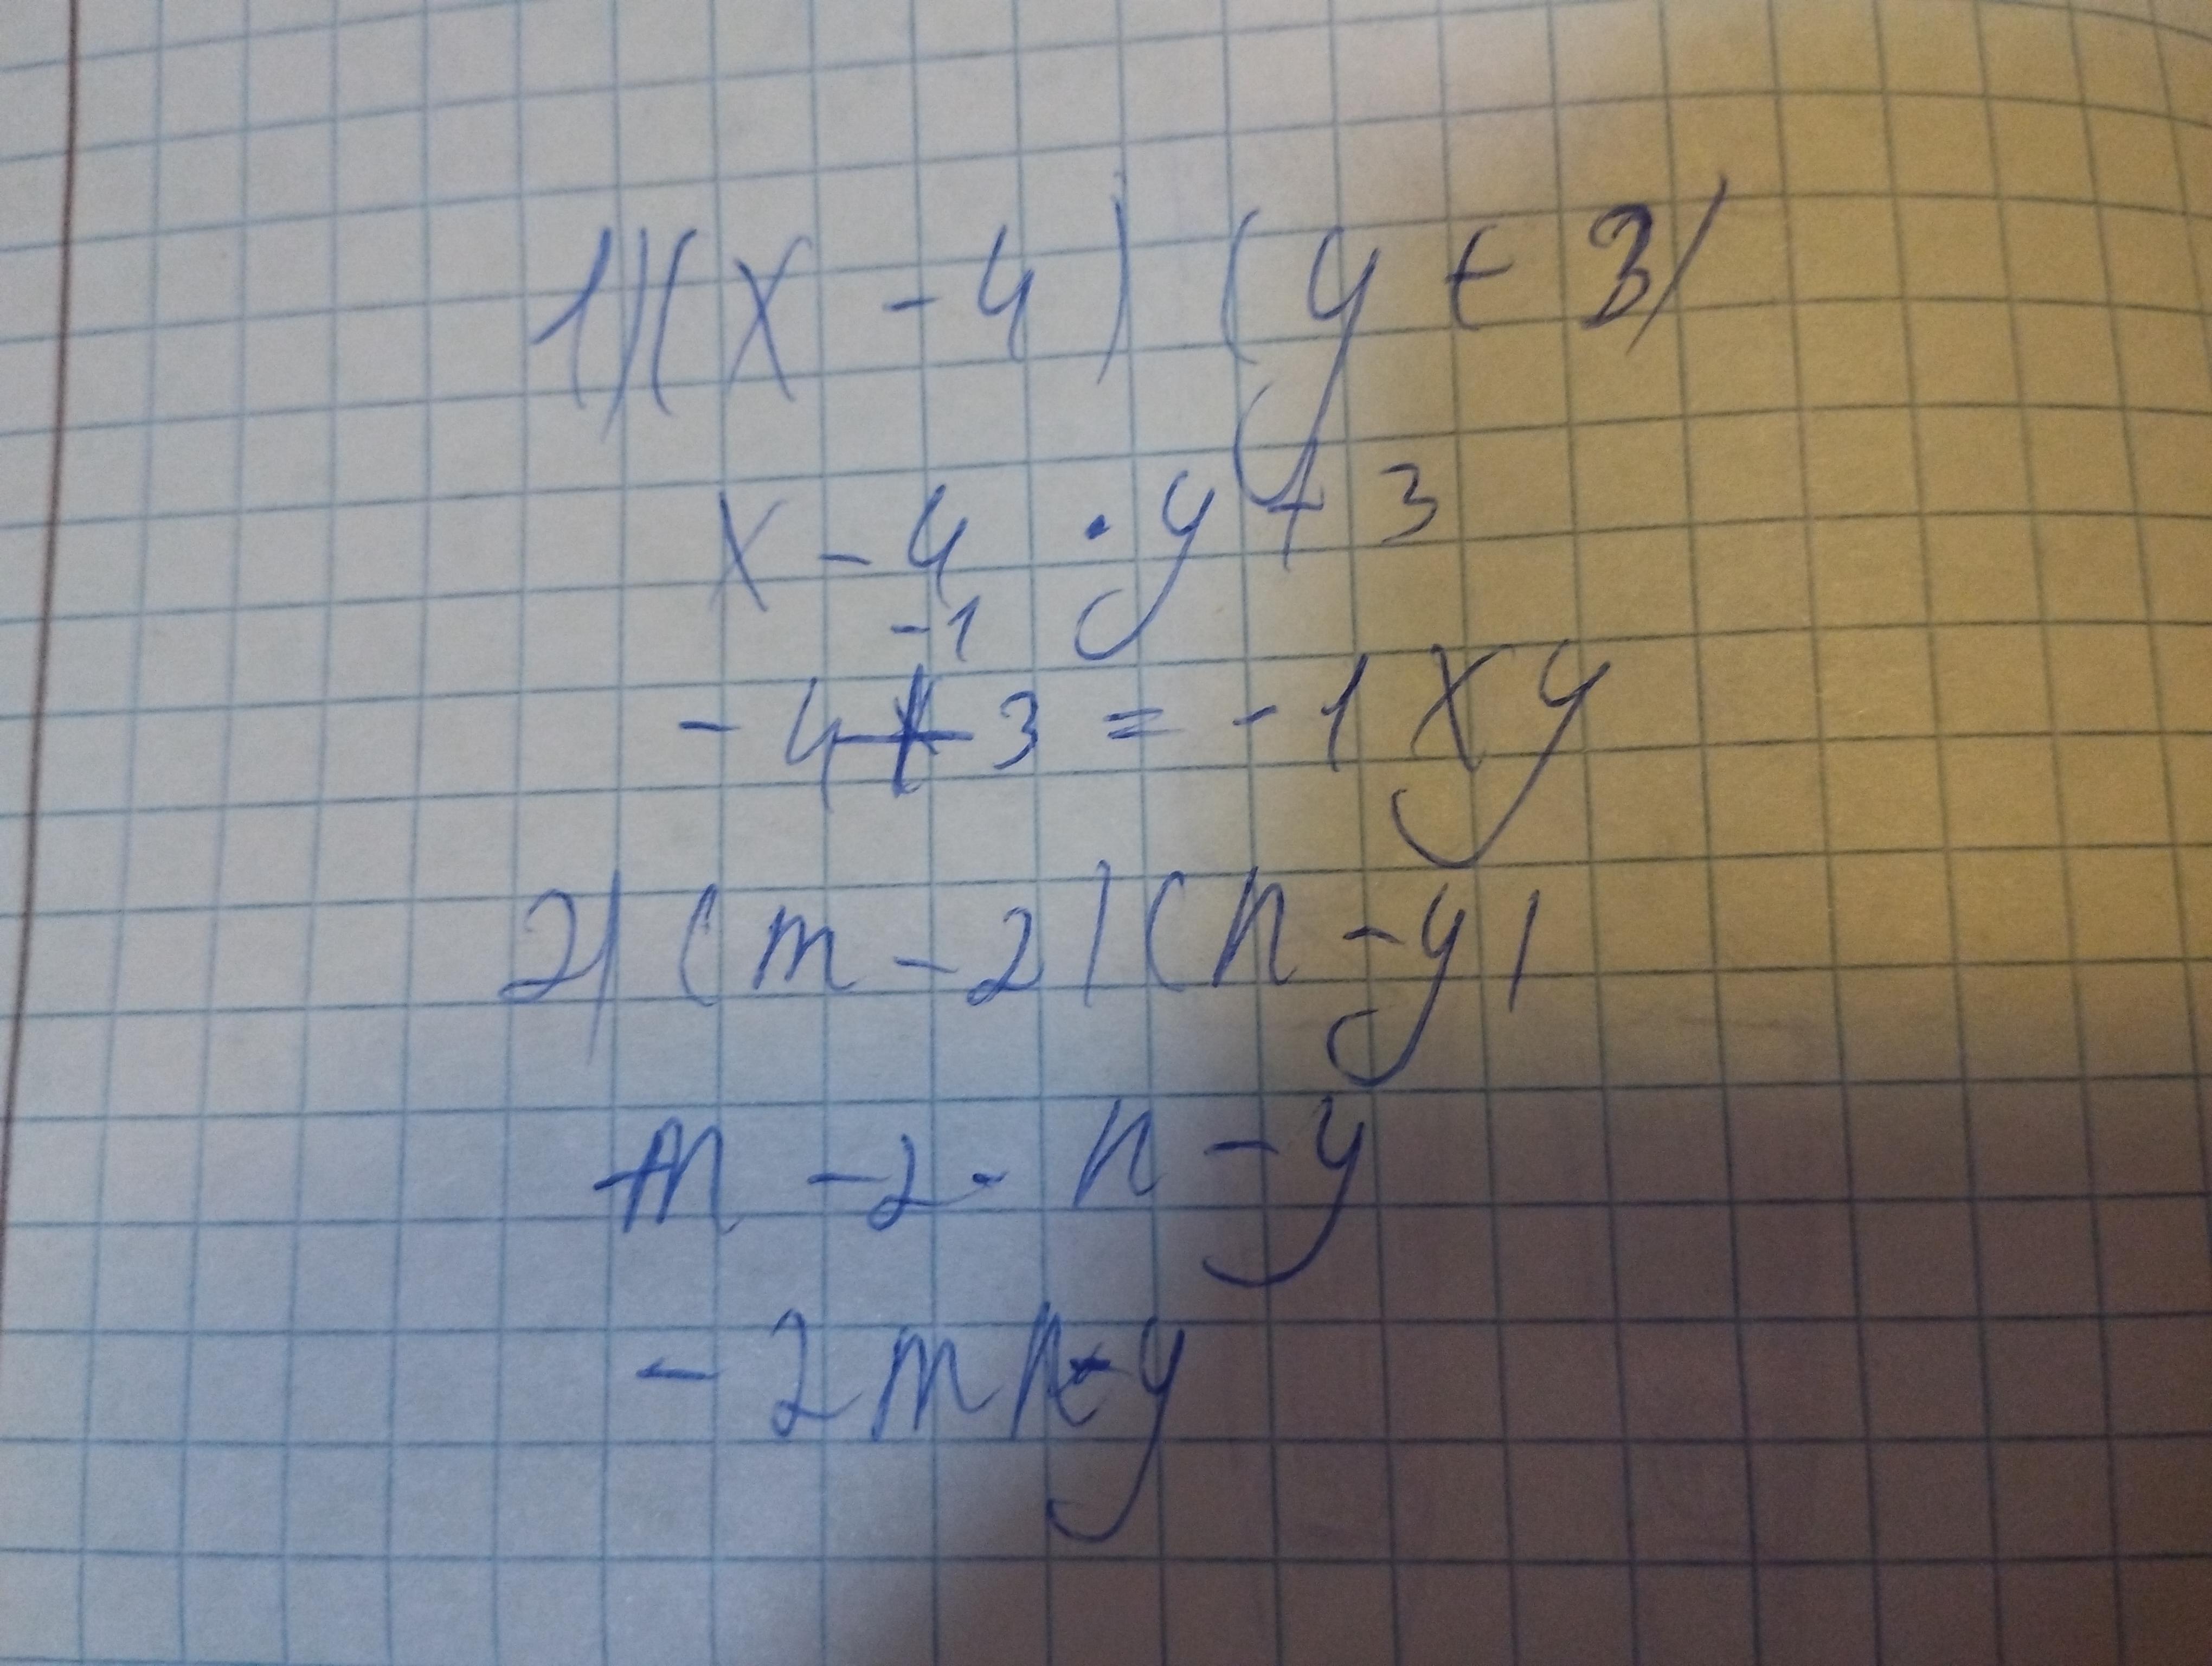 1) (x - 4) (y + 3)
x - 4 · y + 3
-1
- 4 + 3 = - 1 x y
2) (m - 2) (n - y)
m - 2 · n - y
- 2 m n - y